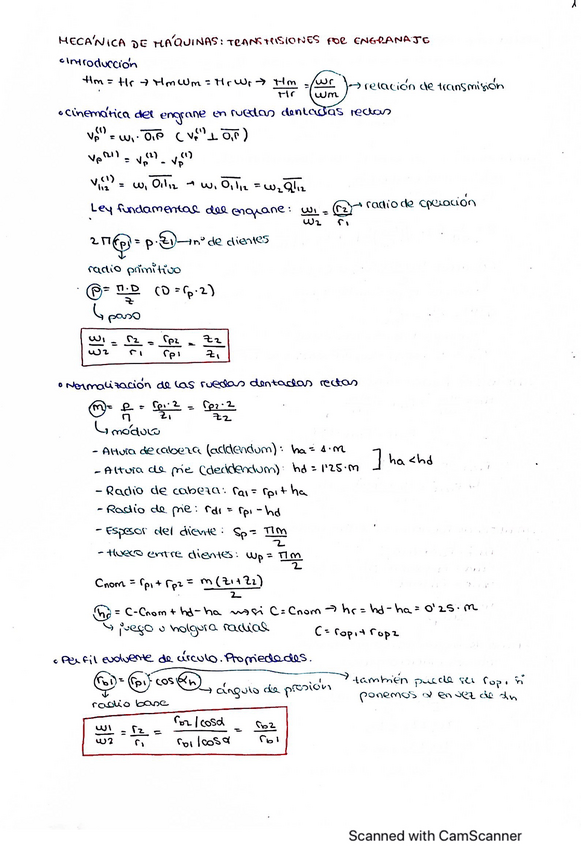 1
MECÁNICA DE MÁQUINAS: TRANSMISIONES POR ENGRANAJE
• Introducción
Hm = Hr → Mm wm = Mr wr → Mm/Mr = wr/wm → relación de transmisión
• Cinemática del engrane en ruedas dentadas rectas
Vp^(1) = w1 · O1P ( Vp^(1) ⊥ O1P )
Vp^(21) = Vp^(2) - Vp^(1)
V_I12^(1) = w1 O1I12 → w1 O1I12 = w2 O2I12
Ley fundamental del engrane: w1/w2 = r2/r1 → radio de operación
2Π rp1 = p · z1 → nº de dientes
radio primitivo
p = Π·D/z (D = rp · 2)
↳ paso
w1/w2 = r2/r1 = rp2/rp1 = z2/z1
• Normalización de las ruedas dentadas rectas
m = p/Π = rp1·2/z1 = rp2·2/z2
↳ módulo
- Altura de cabeza (addendum): ha = 1·m
- Altura de pie (deddendum): hd = 1'25·m ] ha < hd
- Radio de cabeza: ra1 = rp1 + ha
- Radio de pie: rd1 = rp1 - hd
- Espesor del diente: Sp = Πm/2
- Hueco entre dientes: wp = Πm/2
Cnom = rp1 + rp2 = m(z1+z2)/2
hr = C - Cnom + hd - ha ⟿ si C = Cnom → hr = hd - ha = 0'25·m
↳ juego u holgura radial C = rop1 + rop2
• Perfil evolvente de círculo. Propiedades.
rb1 = rp1 · cos αn → ángulo de presión → también puede ser rop1 si
ponemos α en vez de αn
radio base
w1/w2 = r2/r1 = rb2/cosα / rb1/cosα = rb2/rb1
Scanned with CamScanner